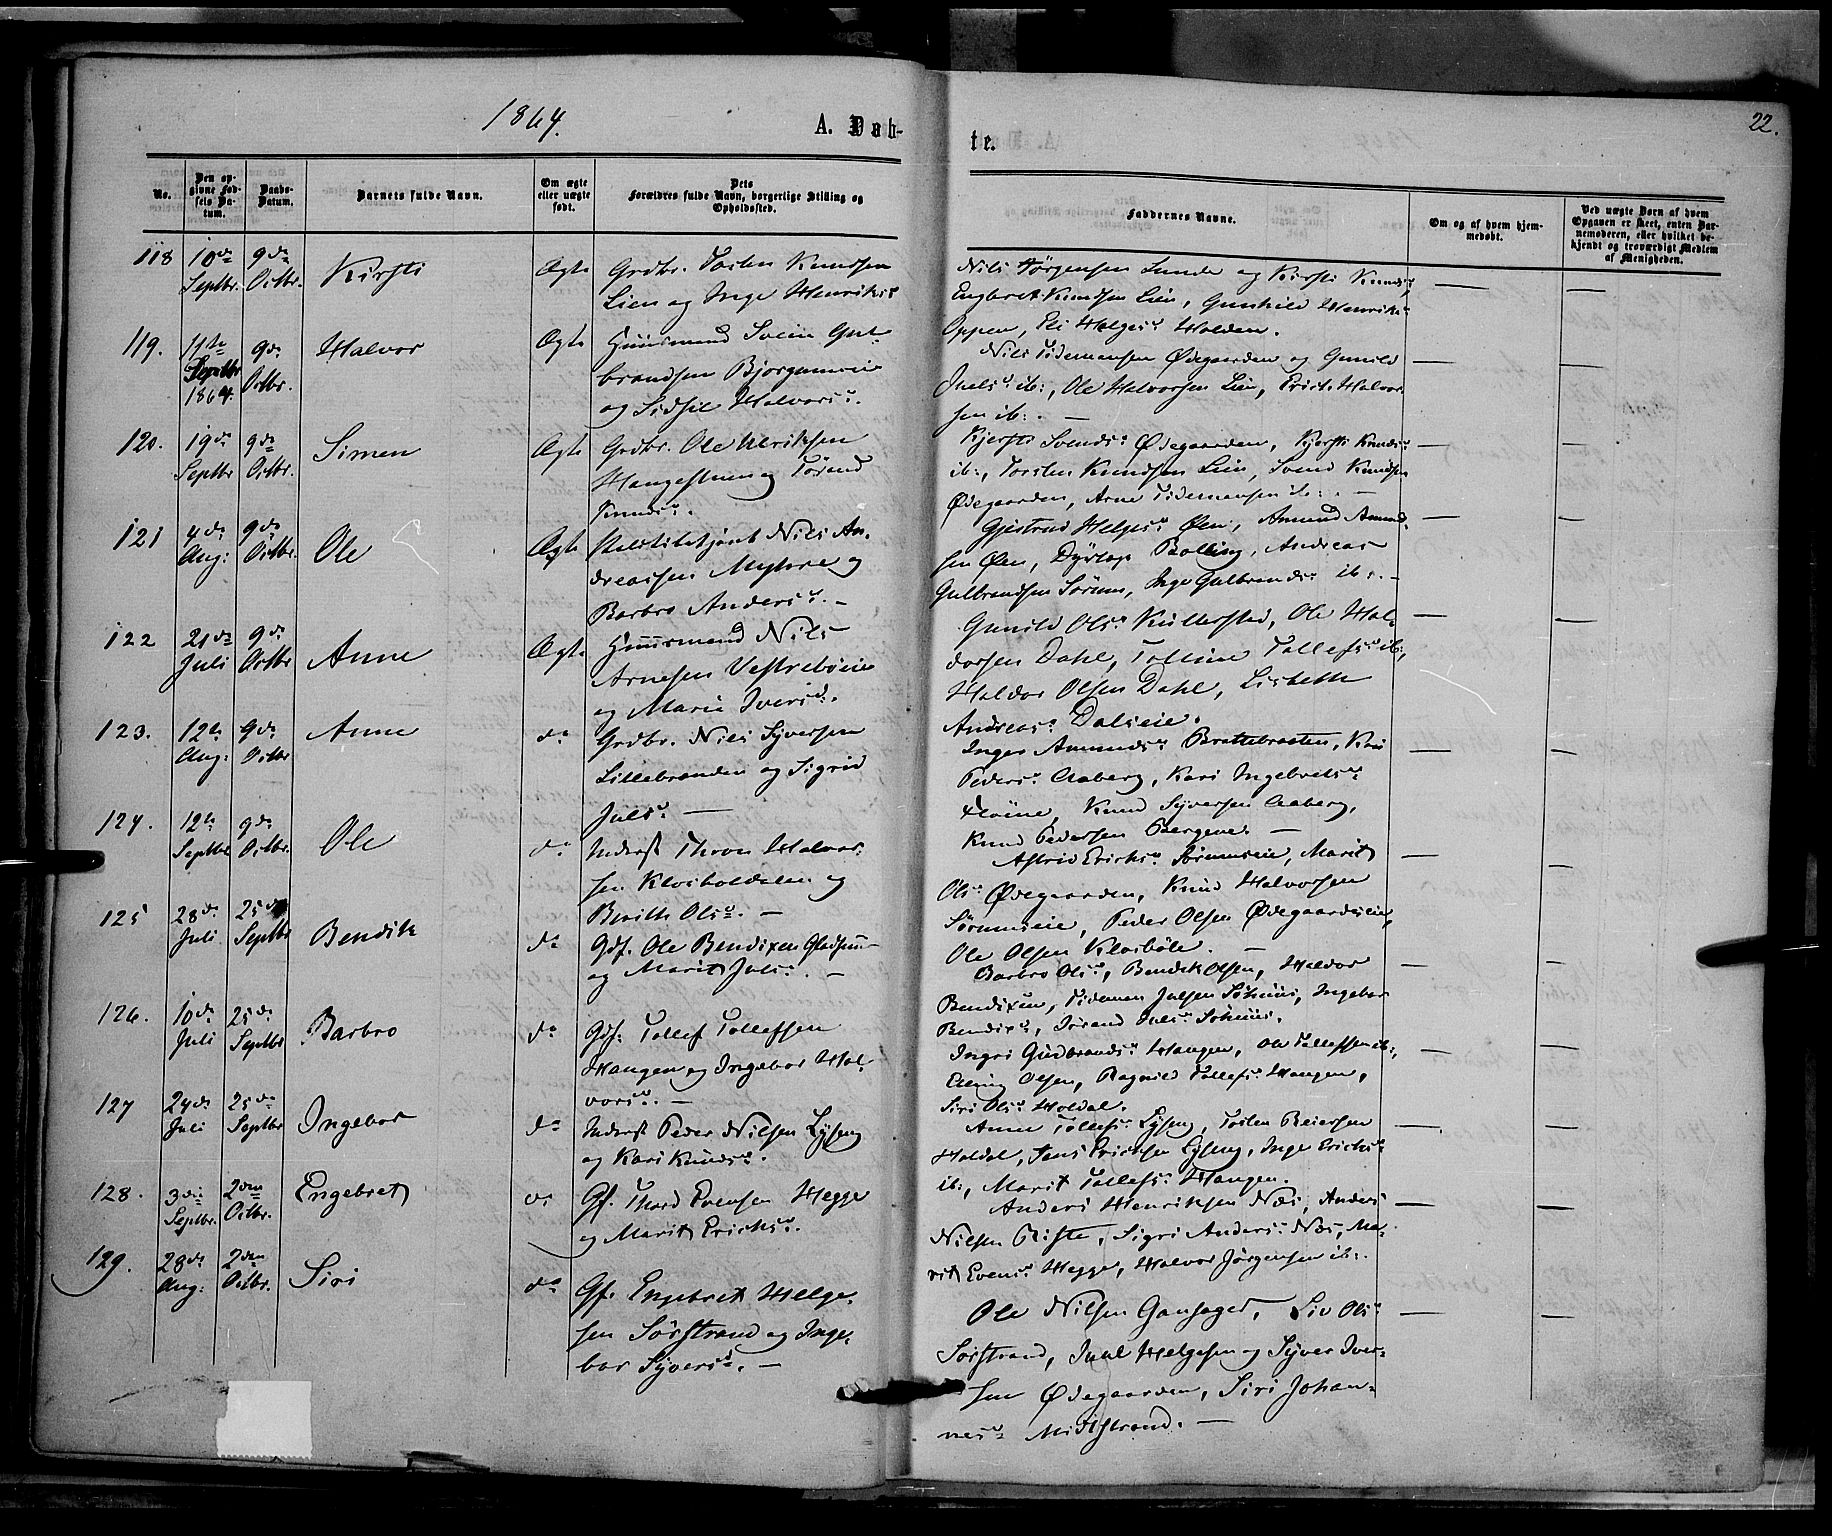 1864.
A. Døb-
te.
22.
No.
Den op-
givne Fød-
sels Da-
tum.
Daabs-
Datum.
Barnets fulde Navn.
Om ægte
eller uægte
født.
Dets
Forældres fulde Navn, borgerlige Stilling og
Opholdssted.
Faddernes Navne.
Om og af hvem hjem-
medøbt.
Ved uægte Børn af hvem
Opgaven er skeet, enten Bar-
nemoderen, eller hvilket be-
kjendt og troværdigt Medlem
af Menigheden.
118 10de Septbr. 9de Octbr. Kirsti Ægte Grdbr. Tosten Knudsen
Lien og Inge Henriks
Nils Jørgensen Lunde og Kirsti Knuds,
Engbret Knudsen Lien, Gunhild Henriks
Oppen, Eli Helges Holden.
119. 11te Septbr 1864. 9de Octbr. Halvor Ægte Huusmand Svein Gul-
brandsen Bjørgumeie
og Sidsil Halvors.
Nils Tidemansen Ødegaarden og Gunild
Juels ib:, Ole Halvorsen Lien, Erick Halvor-
sen ib:. —
120. 19de Septbr 9de Octbr. Simen Ægte Grdbr. Ole Ulriksen
Haugestuen og Jørand
Knuds.
Kjersti Svends Ødegaarden, Kjersti Knuds
ib:, Torsten Knudsen Lien, Svend Knudsen
Ødegaarden, Arne Tidemansen ib:. —
121 4de Aug: 9de Octbr. Ole Ægte Nils An-
dreassen Myhre og
Barbro Anders. —
Gjertrud Helges Øen, Amund Amund-
sen Øen, Bolling, Andreas
Gulbrandsen Sørum, Inge Gulbrands ib:. —
122 21de Juli 9de Octbr Anne Ægte Huusmand Nils
Arnesen Vestrebøeie
og Marie Ivers.
Gunild Ols Kullersted, Ole Hal-
dorsen Dahl, Tolline Tollefs ib:,
Haldor Olsen Dahl, Lisbeth
Andreas Dalseie.
123. 12te Aug: 9de Octbr Anne do Grdbr. Nils Syversen
Lillebraaden og Sigrid
Juls. —
Inger Amunds Brattebraaten, Kari
Peders Aaberg, Kari Ingebrets
Knud Syversen Aaberg,
Knud Pedersen Bergene. —
124. 12te Septbr 9de Octbr. Ole do Inderst Thron Halvor-
sen Klosbøldalen og
Berith Ols. —
Astrid Ericks Sørumseie, Marit
Ols Ødegaarden, Knud Halvorsen
Sørumseie, Peder Olsen Ødegaardseie,
Ole Olsen Klosbøle. —
125 28de Juli 25de Septbr Bendik do Gdf. Ole Bendixen
og Marit Juls. —
Barbro Ols, Bendik Olsen, Haldor
Bendixen, Tideman Julsen, Ingebor
Bendix, Jørand Juls.
126. 10de Juli 25de Septbr Barbro do Gdf: Tollef Tollefsen
Haugen og Ingebor Hal-
vors. —
Ingri Gudbrands Haugen, Ole Tollefsen ib:,
Elling Olsen, Ragnild Tollefs Haugen,
Siri Ols Holdal.
127 24de Juli 25de Septbr Ingebor do Inderst Peder Nilsen Lyseng
og Kari Knuds.
Anne Tollefs Lyseng, Tosten Reiersen
Holdal, Jens Ericksen Lyseng, Inge Ericks
ib:, Marit Tollefs Haugen.
128. 3die Septbr. 2den Octbr. Engebret do Gf. Thord Evensen Hegge
og Marit Ericks.
Anders Henriksen Næs, Anders
Nilsen Riste, Sigri Anders Næs, Ma-
rit Evens Hegge, Halvor Jørgensen ib:.
129. 28de Aug: 2den Octbr. Siri do Gf. Engebret Helge-
sen Sørstrand og Inge-
bor Syvers. —
Ole Nilsen Gansager, Liv Ols
Sørstrand, Juul Helgesen og Syver Iver-
sen Ødegaarden, Siri Johan-
nes Midtstrand. —